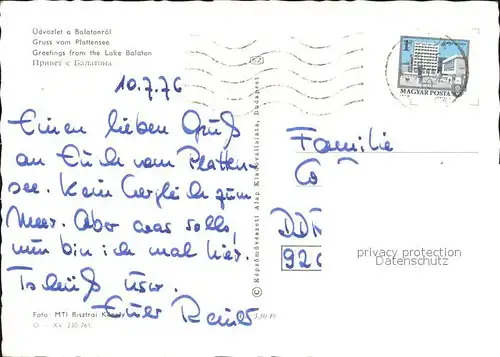 Üdvözlet a Balatonról
Gruss vom Plattensee
Greetings from the Lake Balaton
Привет с Балатона
10.7.76
Einen lieben Gruß
an Euch vom Platten-
see. Kein Vergleich zum
Meer. Aber was solls,
nun bin ich mal hier.
Tschüß usw.
Euer
Foto: MTI Bisztrai Károly
© Képzőművészeti Alap Kiadóvállalata, Budapest
MAGYAR POSTA
Familie
DDR
privacy protection
Datenschutz